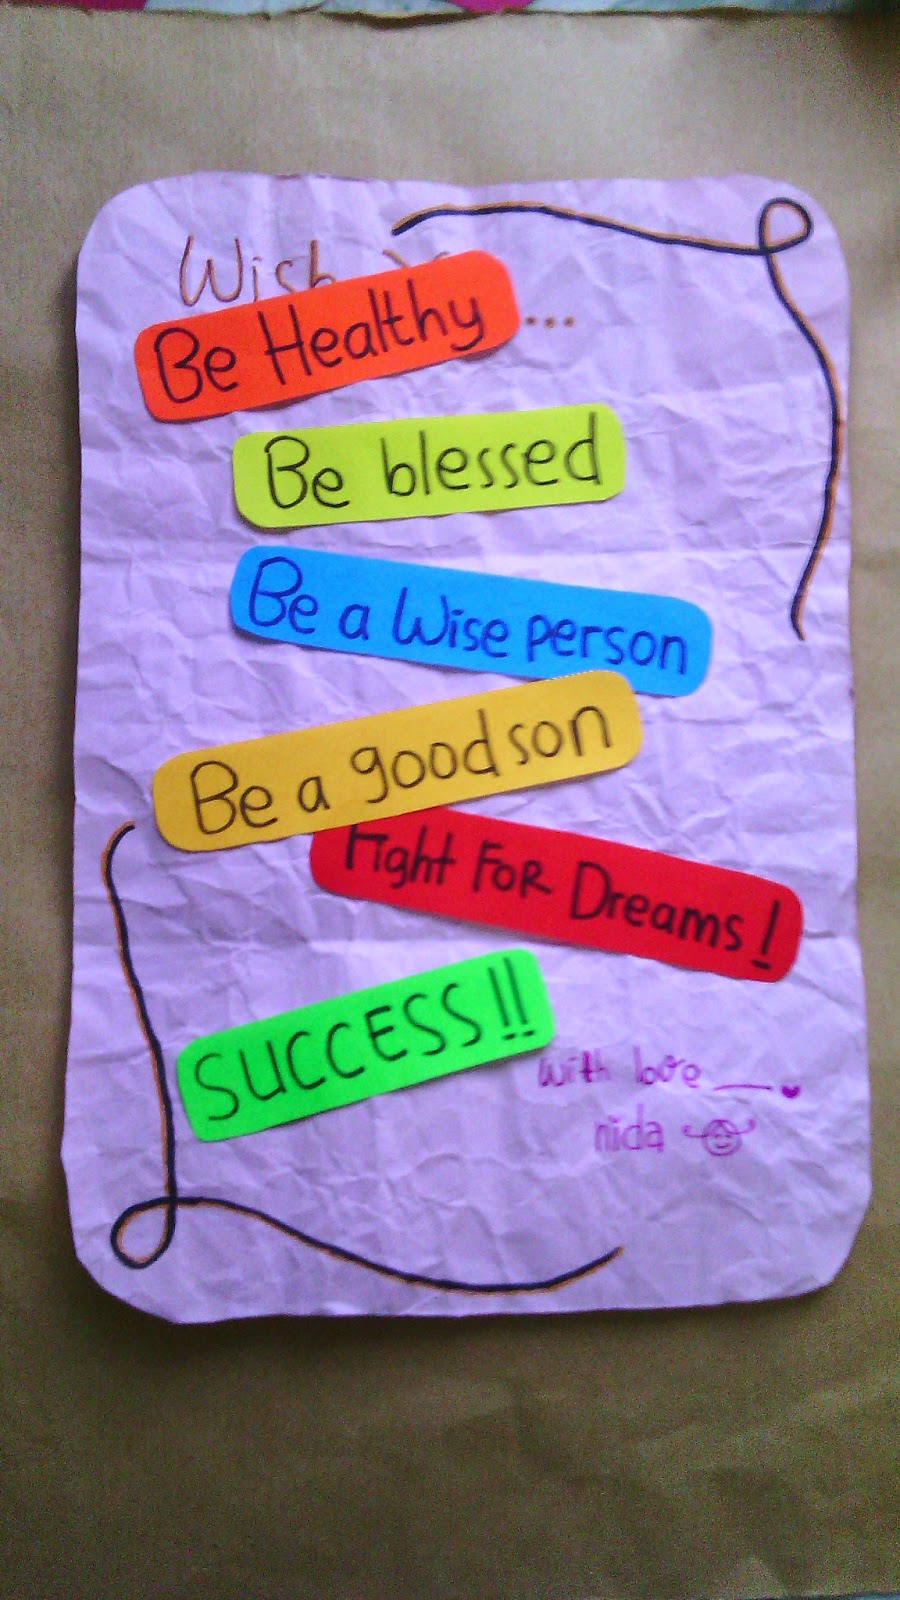 Wish ...
Be Healthy
Be blessed
Be a Wise person
Be a good son
Fight FOR Dreams!
SUCCESS!!
With love
nida